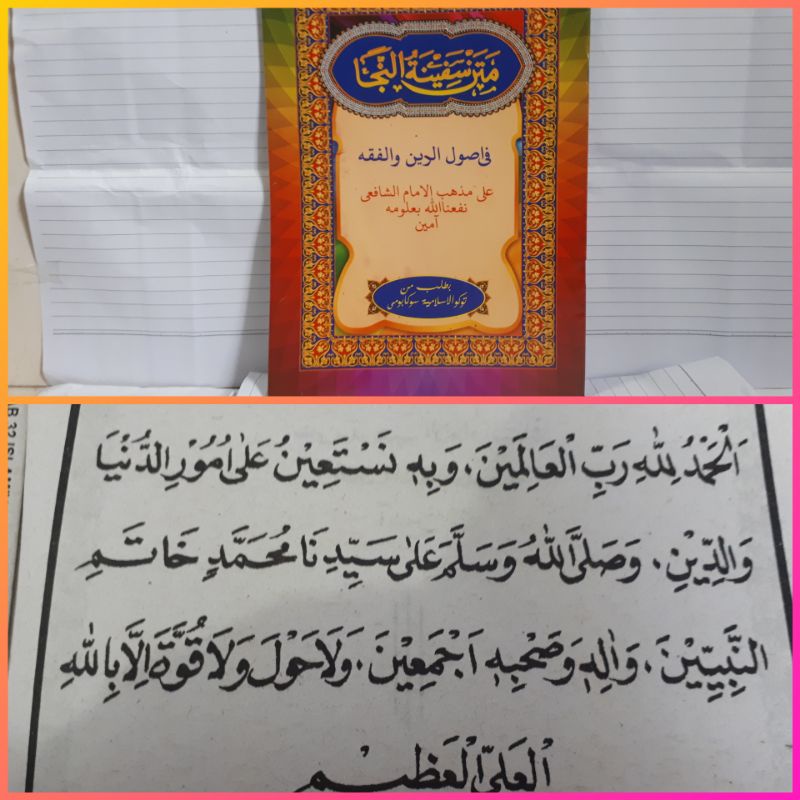 متن سفينة النجا
فى اصول الرين والفقه
على مذهب الامام الشافعى
نفعنا الله بعلومه
آمين
يطلب من
توكو الاسلامية سوكابومى
اَلْحَمْدُ لِلّٰهِ رَبِّ الْعَالَمِيْنَ، وَبِهِ نَسْتَعِيْنُ عَلٰى اُمُوْرِ الدُّنْيَا
وَالدِّيْنِ، وَصَلَّى اللّٰهُ وَسَلَّمَ عَلٰى سَيِّدِنَا مُحَمَّدٍ خَاتَمِ
النَّبِيِّيْنَ، وَاٰلِهِ وَصَحْبِهِ اَجْمَعِيْنَ، وَلَا حَوْلَ وَلَا قُوَّةَ اِلَّا بِاللّٰهِ
الْعَلِيِّ الْعَظِيْمِ